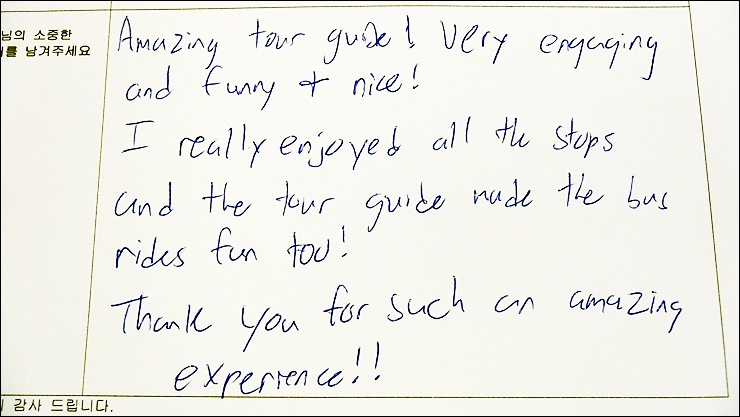 님의 소중한
를 남겨주세요
Amazing tour guide! Very engaging
and funny + nice!
I really enjoyed all the stops
and the tour guide made the bus
rides fun too!
Thank you for such an amazing
experience!!
감사 드립니다.